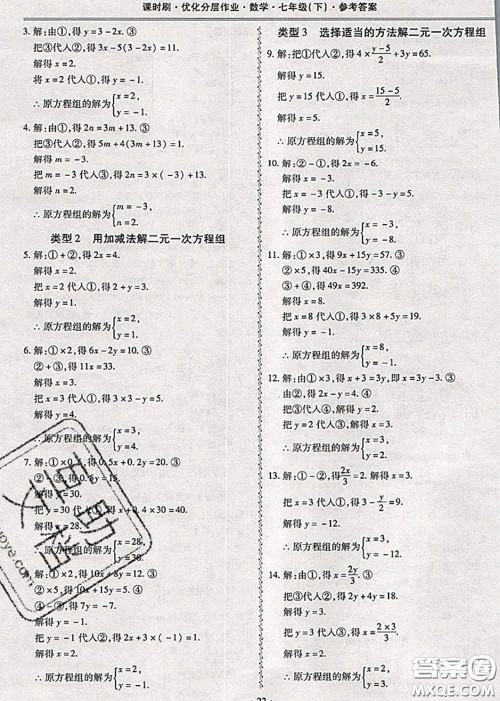 课时刷·优化分层作业·数学·七年级(下)·参考答案
3. 解:由①,得 y=3x-5. ③
把③代入②,得 3x-5(3-2x)=11.
解得 x=2.
把 x=2 代入③,得 y=-1.
∴原方程组的解为{x=2, y=-1.
4. 解:由①,得 2n=3m+13. ③
把③代入②,得 5m+4(3m+13)=1.
解得 m=-3.
把 m=-3 代入③,得 2n=3×(-3)+13.
解得 n=2.
∴原方程组的解为{m=-3, n=2.
类型2 用加减法解二元一次方程组
5. 解:①+②,得 2x=4.
解得 x=2.
把 x=2 代入①,得 2+y=1.
解得 y=-1.
∴原方程组的解为{x=2, y=-1.
6. 解:①×2,得 6x-2y=10. ③
②+③,得 11x=33.
解得 x=3.
把 x=3 代入①,得 3×3-y=5.
解得 y=4.
∴原方程组的解为{x=3, y=4.
7. 解:①×0.5,得 0.5x+0.2y=20. ③
解得 y=30.
把 y=30 代入①
解得 x=28.
∴原方程组的解为{x=28, y=30.
得 10x+8y=12. ③
②×5,得 10x
解得 y=-1.
把 y=-1 代入②,得 2x+3×(-1)=1.
解得 x=2.
∴原方程组的解为{x=2, y=-1.
类型3 选择适当的方法解二元一次方程组
9. 解:把①代入②,得 4×(y-5)/2+3y=65.
解得 y=15.
把 y=15 代入①,得 x=(15-5)/2.
解得 x=5.
∴原方程组的解为{x=5, y=15.
10. 解:②-①,得 2x=-6.
解得 x=-3.
把 x=-3 代入①,得
解得
∴原方程组的解为{x=-3,
11. 解:①×3,得 9x+15y=57. ③
②×5,得 40x-15y=335. ④
③+④,得 49x=392.
解得 x=8.
把 x=8 代入①,得 3×8+5y=19.
解得 y=-1.
∴原方程组的解为{x=8, y=-1.
12. 解:由①,得 x+3=3y,即 x=3y-3. ③
由②,得 2x-y=4. ④
把③代入④,得 2(3y-3)-y=4.
解得 y=2.
把 y=2 代入③,得 x=3.
∴原方程组的解为{x=3, y=2.
13. 解:①-②,得 2x/3=2.
解得 x=3.
把 x=3 代入
解得 y=
∴原方程组的解为{x=3,
14. 解:由①,得 x=2y/3. ③
由②,得 2y+4y=18.
解得 y=3.
把 y=3 代入③,得 x=(2×3)/3.
解得 x=2.
∴原方程组的解为{x=2, y=3.